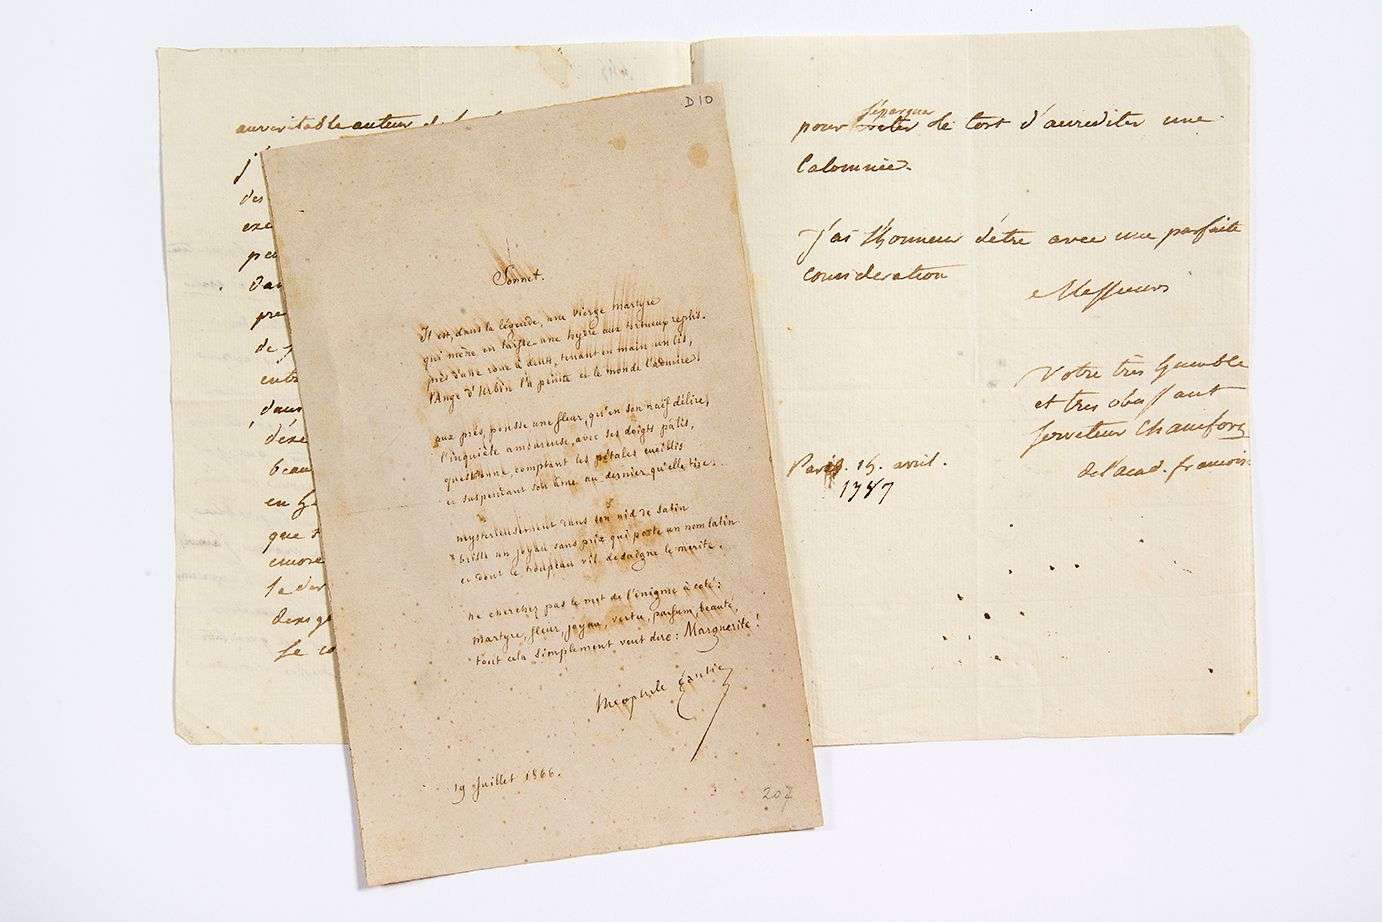 au veritable auteur
j'
des
exe
pe
d'au
pre
de
entr
d'au
dése
beau
en
que
encore
se d
dens
se co
D10
Sonnet.
Il est, dans la légende, une vierge martyre
qui mène en laisse une hydre aux tortueux replis.
près d'une roue à dents, tenant en main un lis,
l'Ange d'Urbin l'a peinte et le monde l'admire!
aux prés, pousse une fleur, qu'en son naïf délire,
l'inquiète amoureuse, avec ses doigts pâlis,
questionne, comptant les pétales cueillis
et suspendant son âme au dernier qu'elle tire.
mystérieusement dans son nid de satin
brille un joyau sans prix qui porte un nom latin
et dont le troupeau vil dédaigne le mérite.
ne cherchez pas le mot de l'énigme à coté:
martyre, fleur, joyau, vertu, parfum, beauté,
tout cela simplement veut dire: Marguerite!
théophile Gautier
19 Juillet 1866.
207
s'épargner
pour le tort d'accrediter une
Calomnie.
J'ai l'honneur d'être avec une parfaite
consideration
Messieurs
Votre très humble
et très obeissant
serviteur Chamfort
de l'acad. françois.
Paris. avril.
1787